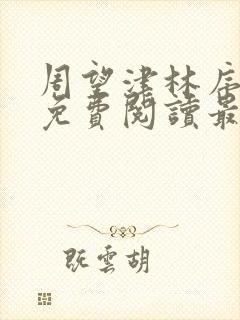 周望津林辰
免費閱讀最
既雲胡